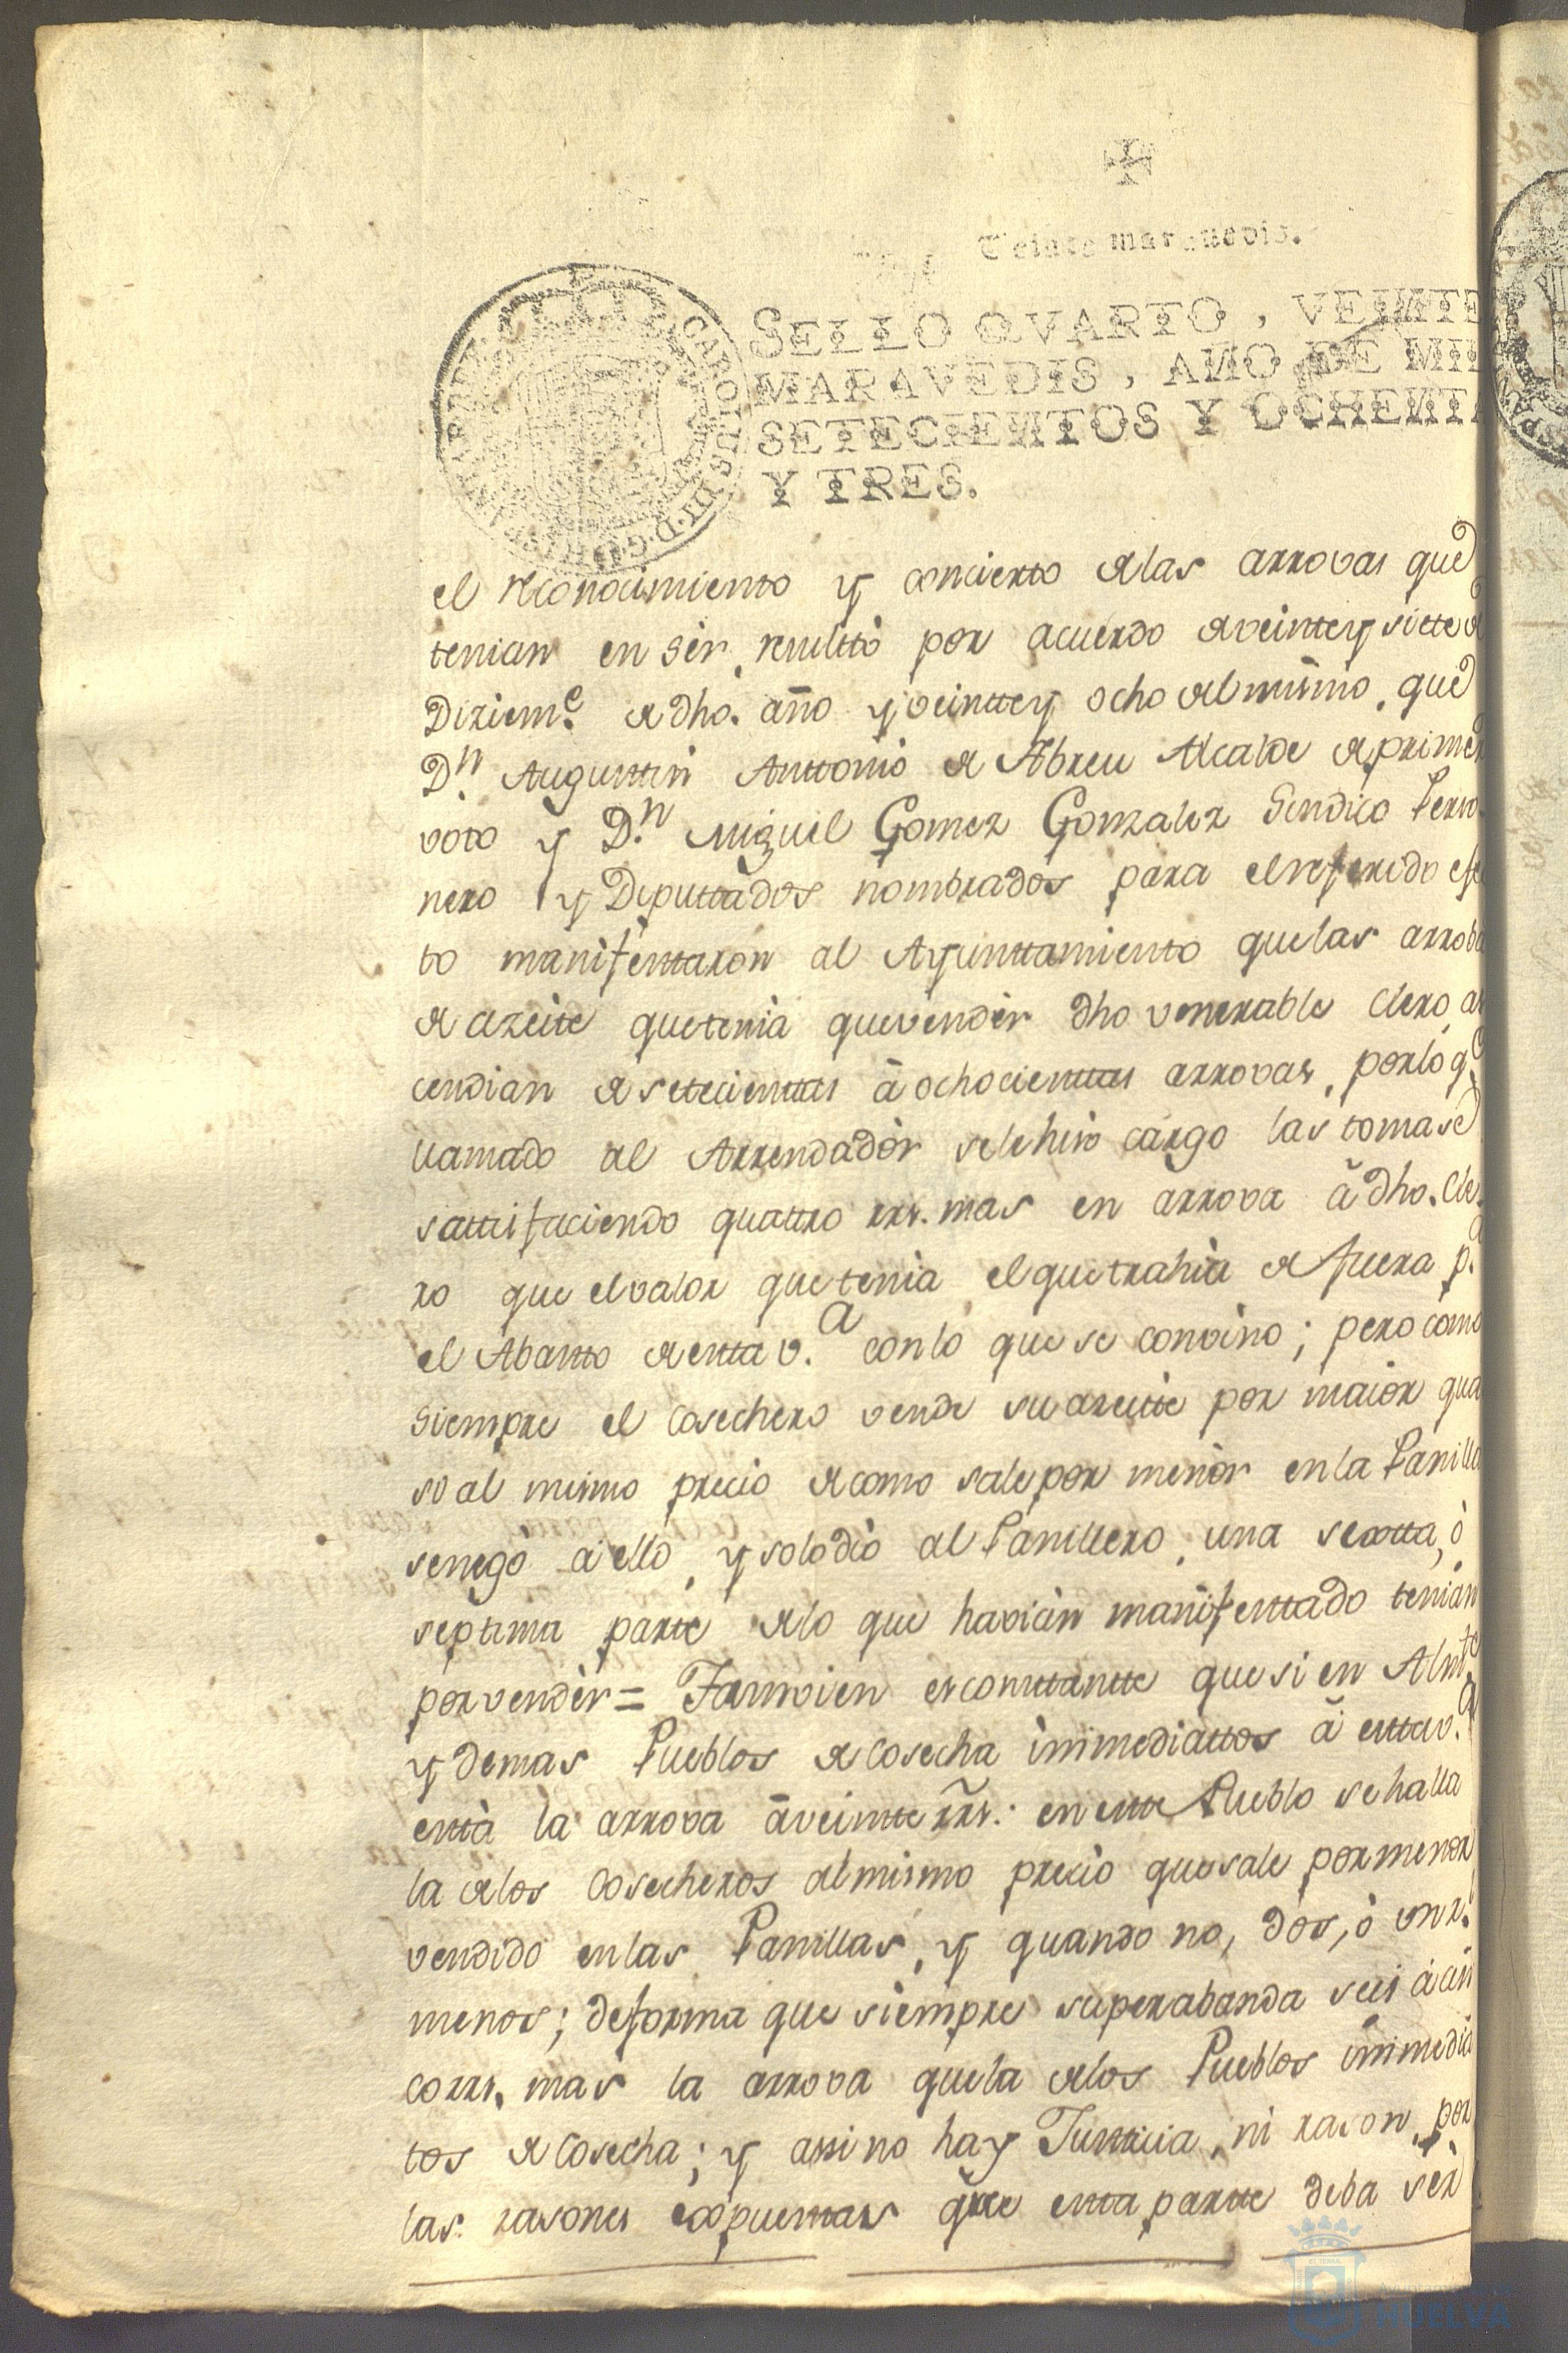 Veinte maravedis.
SELLO QVARTO, VEINTE
MARAVEDIS, AÑO DE MIL
SETECIENTOS Y OCHENTA
Y TRES.
CAROLUS III D.G. HISP
el reconocimiento y concierto de las arrovas que
tenian en ser, resultó por acuerdo de veinte y siete de
Diziem.e de dho. año y veintte y ocho del mismo, que
D.n Augustin Antonio de Abreu Alcalde de primer
voto y D.n Miguel Gomez Gonzalez Sindico Perso
nero y Deputtados nombrados para el referido efec
to manifestaron al Ayunttamiento que las arrobas
de azeite que tenia que vender dho venerable Clero as
cendian de setecientas à ochocienttas arrovas, por lo q.e
llamado al Arrendador se le hizo cargo las tomase
sattisfaciendo quattro rrs. mas en arrova à dho. Cle
ro que el valor que tenia el que trahia de fuera p.a
el Abasto de esta v.a con lo que se convino; pero como
siempre el Cosechero vende su azeitte por maior qua
si al mismo precio de como sale por menor en la Panilla
se negó a ello, y solo dió al Panillero, una sexta, ò
septima parte de lo que havian manifesttado tenian
por vender = Tamvien es consttantte que si en Almte
y demas Pueblos de Cosecha inmediattos à estta v.a
està la arrova à veintte rrs.: en estte Pueblo se halla
la de los Cosecheros al mismo precio que sale por menor
vendido en las Panillas, y quando no, dos, ò un r.l
menos; de forma que siempre superabanda seis à cin
co rrs. mas la arrova que la de los Pueblos inmedia
tos de Cosecha; y assi no hay Justticia, ni razon, por
las razones expuesttas que esta partte deba ser
HUELVA